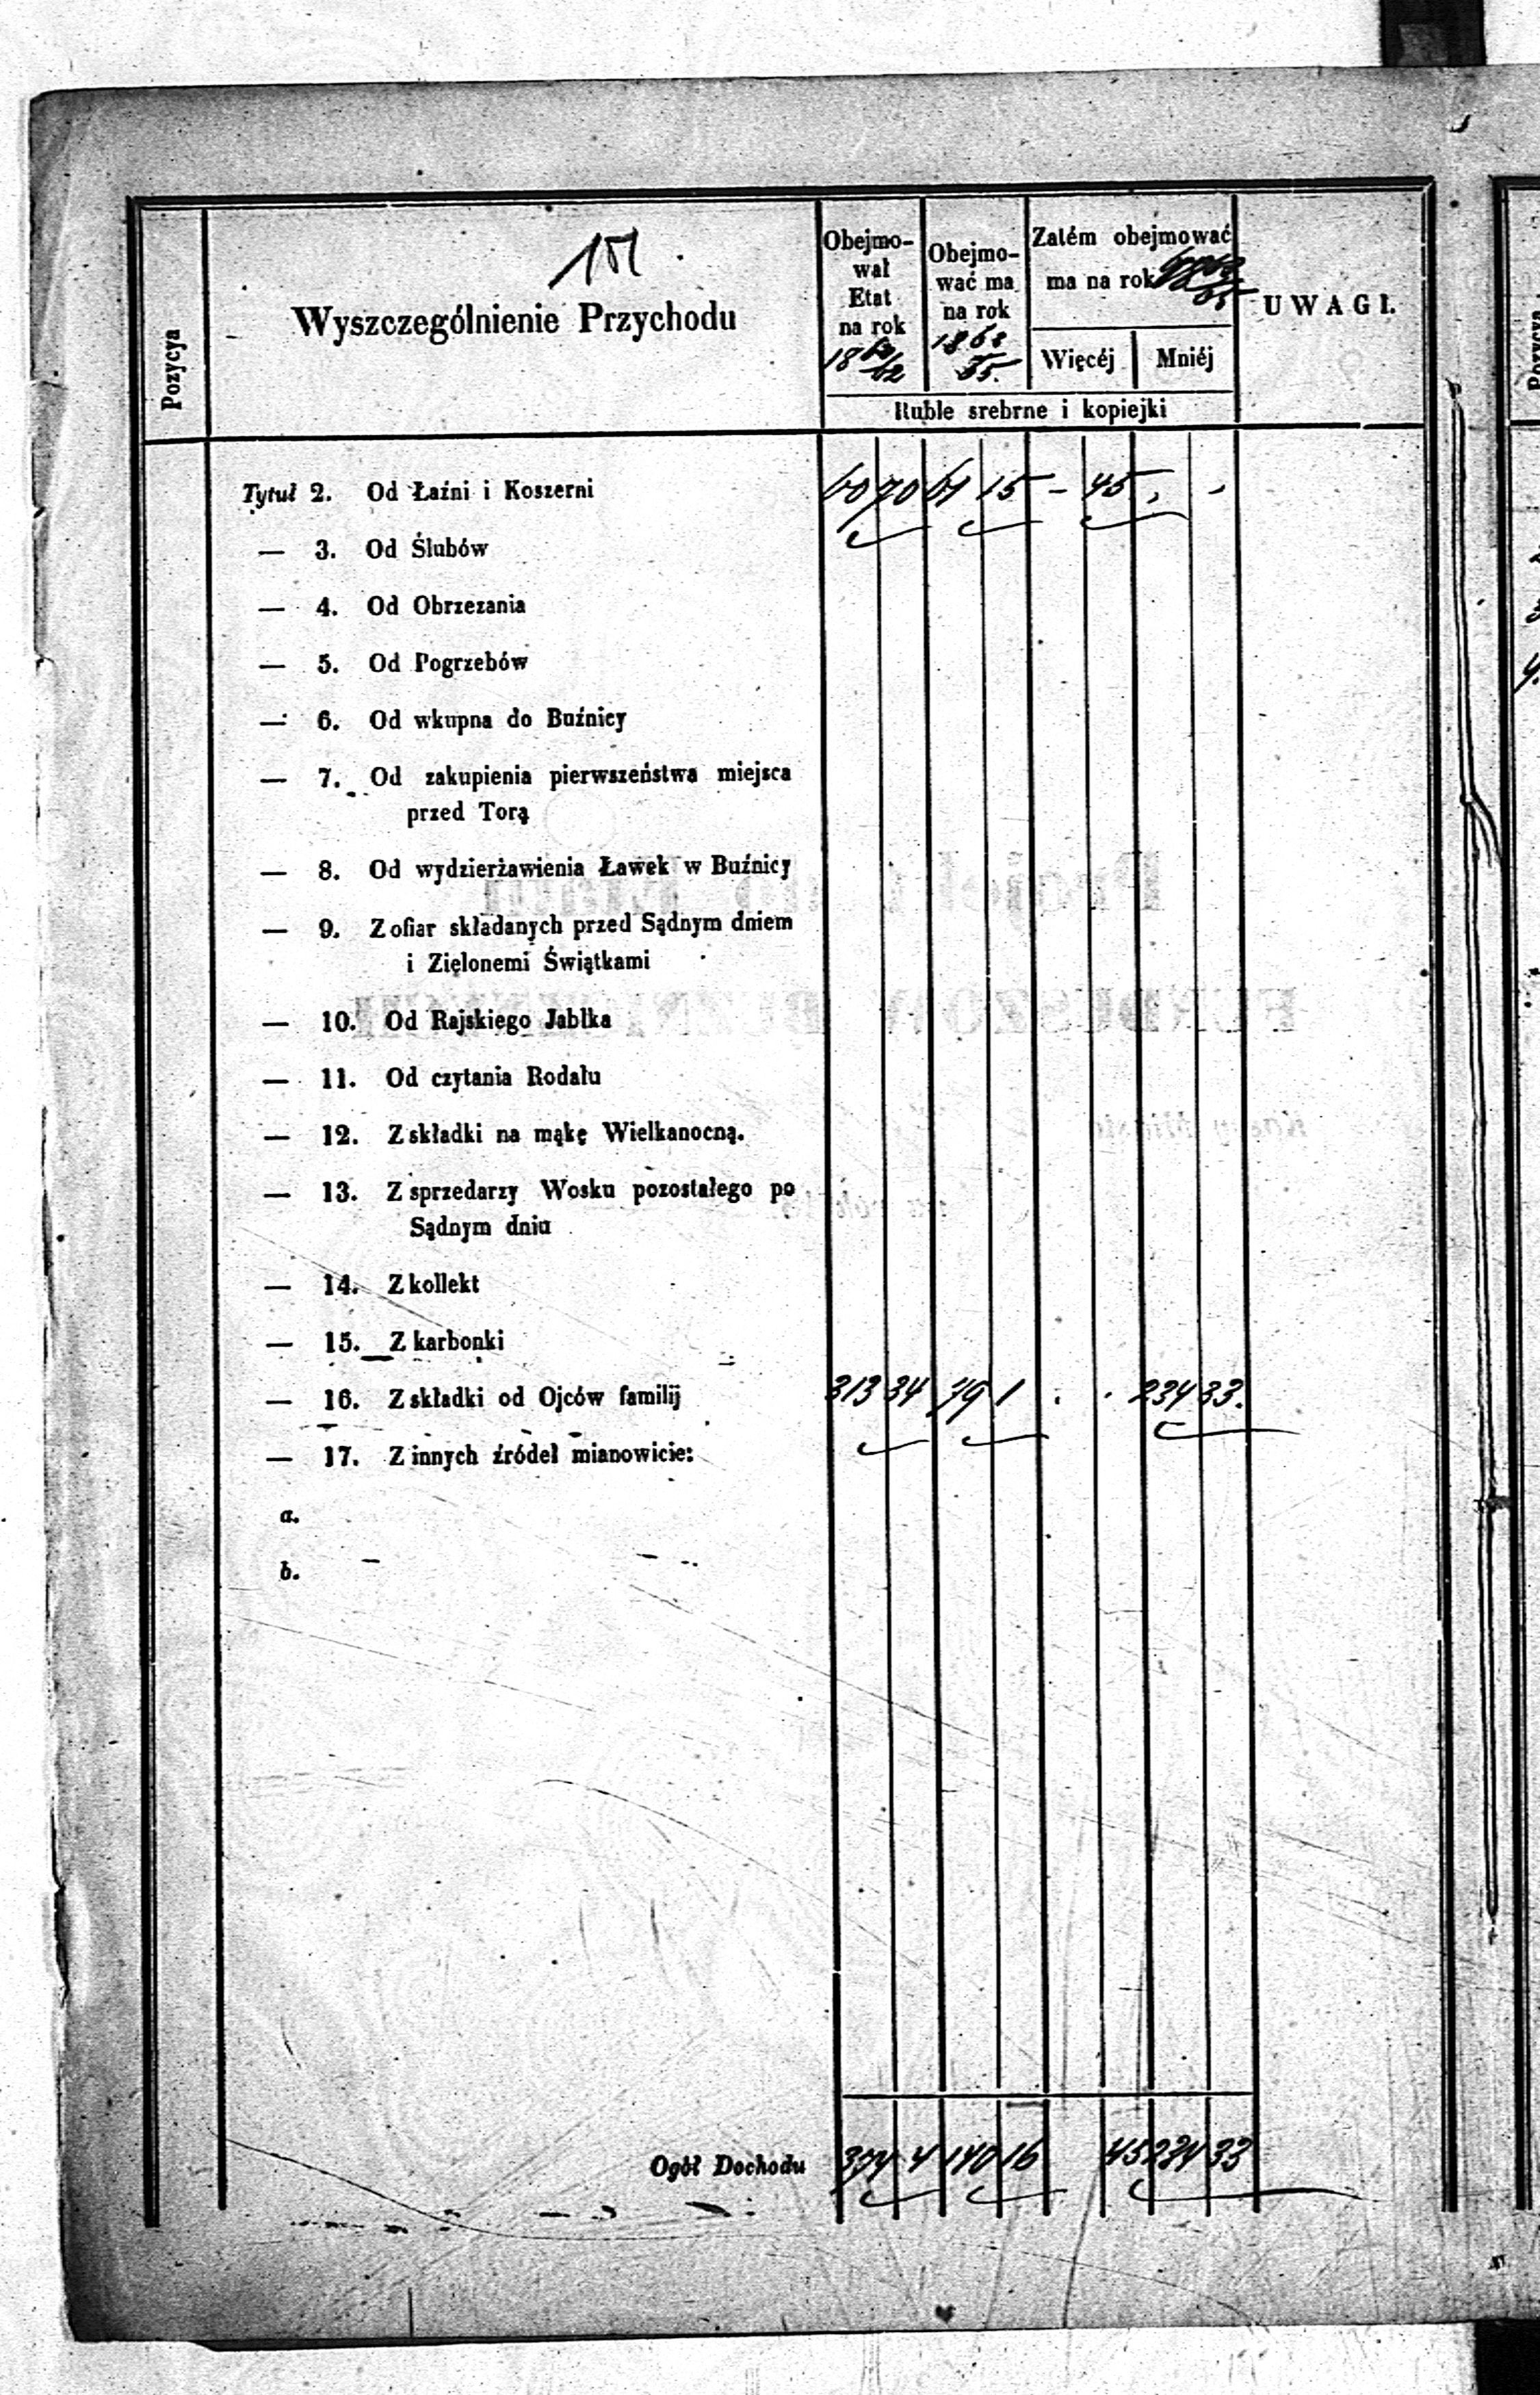 151.
Pozycya
Wyszczególnienie Przychodu
Obejmo-
wał
Etat
na rok
Obejmo-
wać ma
na rok
Zatém obejmować
ma na rok
Więcéj Mniéj
Ruble srebrne i kopiejki
UWAGI.
Tytuł 2. Od Łaźni i Koszerni 60 70 61 15 - 45 . -
— 3. Od Ślubów
— 4. Od Obrzezania
— 5. Od Pogrzebów
— 6. Od wkupna do Buźnicy
— 7. Od zakupienia pierwszeństwa miejsca
przed Torą
— 8. Od wydzierżawienia Ławek w Buźnicy
— 9. Z ofiar składanych przed Sądnym dniem
i Zielonemi Świątkami
— 10. Od Rajskiego Jabłka
— 11. Od czytania Rodału
— 12. Z składki na mąkę Wielkanocną.
— 13. Z sprzedarzy Wosku pozostałego po
Sądnym dniu
— 14. Z kollekt
— 15. Z karbonki
— 16. Z składki od Ojców familij 313 34 79 1 . . 234 33.
— 17. Z innych źródeł mianowicie:
a.
b.
Ogół Dochodu 374 4 140 16 45 234 33